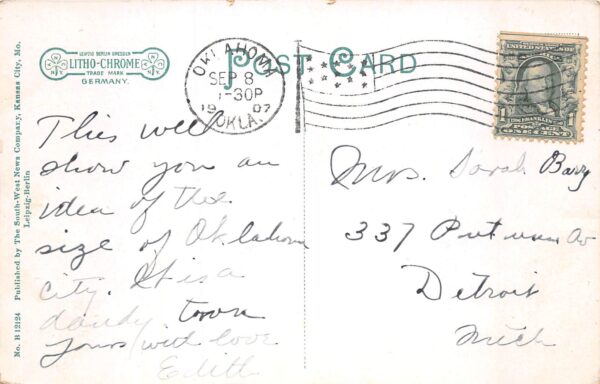 LEIPZIG BERLIN DRESDEN
LITHO-CHROME
TRADE MARK
GERMANY.
POST CARD
OKLAHOMA
SEP 8
-30P
1907
OKLA.
UNITED STATES OF AMERICA
1 FRANKLIN 1
POSTAGE
ONE CENT
No. B 12124 Published by The South-West News Company, Kansas City, Mo.
Leipzig-Berlin
This will
show you an
idea of the
size of Oklahoma
city. It is a
dandy town
Yours with love
Edith
Mrs. Sarah Barry
337 Putnam Av
Detroit
Mich